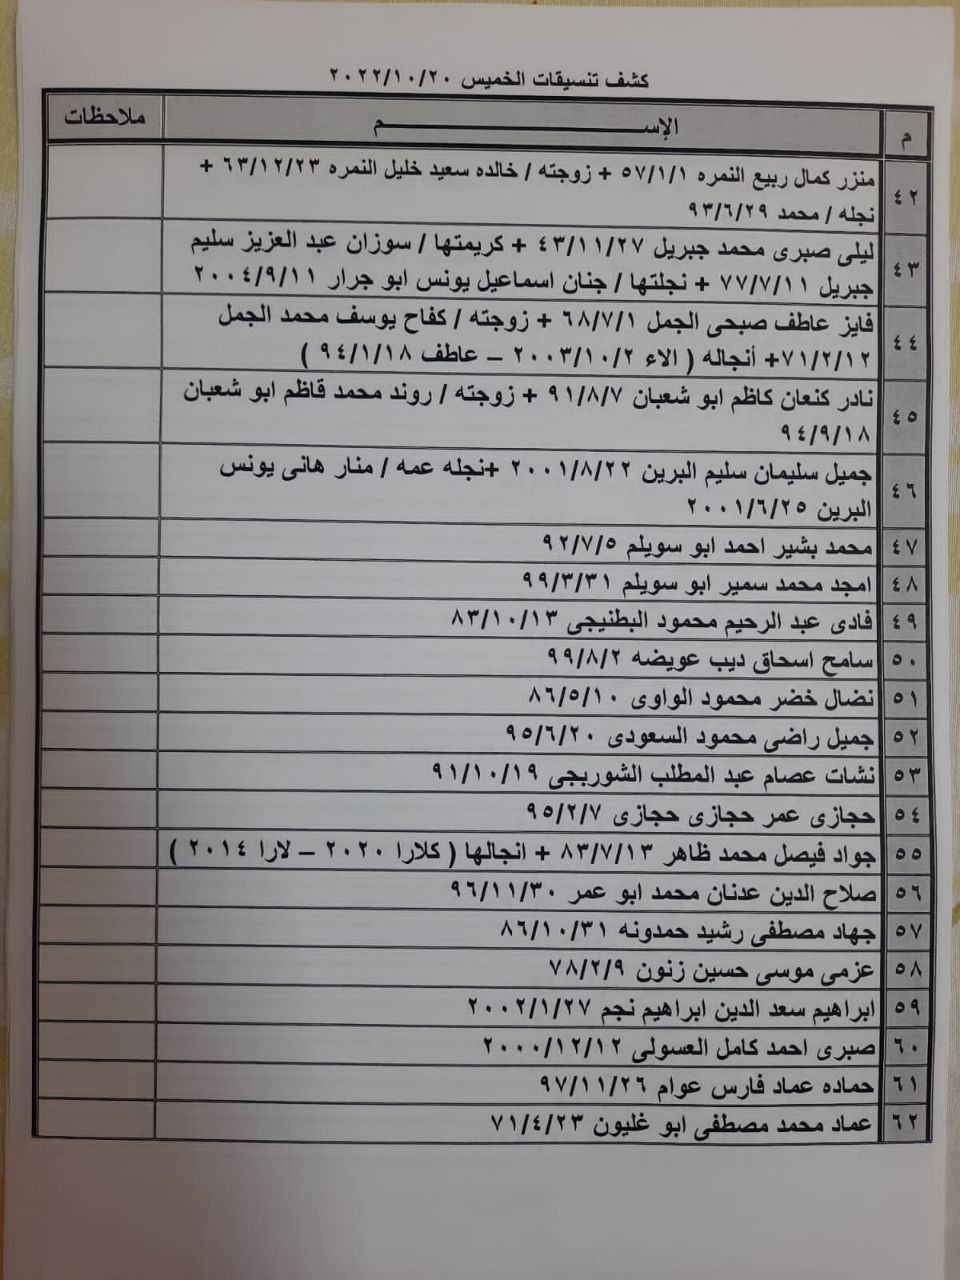 كشف تنسيقات الخميس ٢٠٢٢/١٠/٢٠
م الإســــــــم ملاحظات
٤٢ منزر كمال ربيع النمره ٥٧/١/١ + زوجته / خالده سعيد خليل النمره ٦٣/١٢/٢٣ +
نجله / محمد ٩٣/٦/٢٩
٤٣ ليلى صبرى محمد جبريل ٤٣/١١/٢٧ + كريمتها / سوزان عبد العزيز سليم
جبريل ٧٧/٧/١١ + نجلتها / جنان اسماعيل يونس ابو جرار ٢٠٠٤/٩/١١
٤٤ فايز عاطف صبحى الجمل ٦٨/٧/١ + زوجته / كفاح يوسف محمد الجمل
٧١/٢/١٢+ أنجاله ( الاء ٢٠٠٣/١٠/٢ – عاطف ٩٤/١/١٨ )
٤٥ نادر كنعان كاظم ابو شعبان ٩١/٨/٧ + زوجته / روند محمد قاظم ابو شعبان
٩٤/٩/١٨
٤٦ جميل سليمان سليم البرين ٢٠٠١/٨/٢٢ +نجله عمه / منار هانى يونس
البرين ٢٠٠١/٦/٢٥
٤٧ محمد بشير احمد ابو سويلم ٩٢/٧/٥
٤٨ امجد محمد سمير ابو سويلم ٩٩/٣/٣١
٤٩ فادى عبد الرحيم محمود البطنيجى ٨٣/١٠/١٣
٥٠ سامح اسحاق ديب عويضه ٩٩/٨/٢
٥١ نضال خضر محمود الواوى ٨٦/٥/١٠
٥٢ جميل راضى محمود السعودى ٩٥/٦/٢٠
٥٣ نشات عصام عبد المطلب الشوربجى ٩١/١٠/١٩
٥٤ حجازى عمر حجازى حجازى ٩٥/٢/٧
٥٥ جواد فيصل محمد ظاهر ٨٣/٧/١٣ + انجالها ( كلارا ٢٠٢٠ – لارا ٢٠١٤ )
٥٦ صلاح الدين عدنان محمد ابو عمر ٩٦/١١/٣٠
٥٧ جهاد مصطفى رشيد حمدونه ٨٦/١٠/٣١
٥٨ عزمى موسى حسين زنون ٧٨/٢/٩
٥٩ ابراهيم سعد الدين ابراهيم نجم ٢٠٠٢/١/٢٧
٦٠ صبرى احمد كامل العسولى ٢٠٠٠/١٢/١٢
٦١ حماده عماد فارس عوام ٩٧/١١/٢٦
٦٢ عماد محمد مصطفى ابو غليون ٧١/٤/٢٣